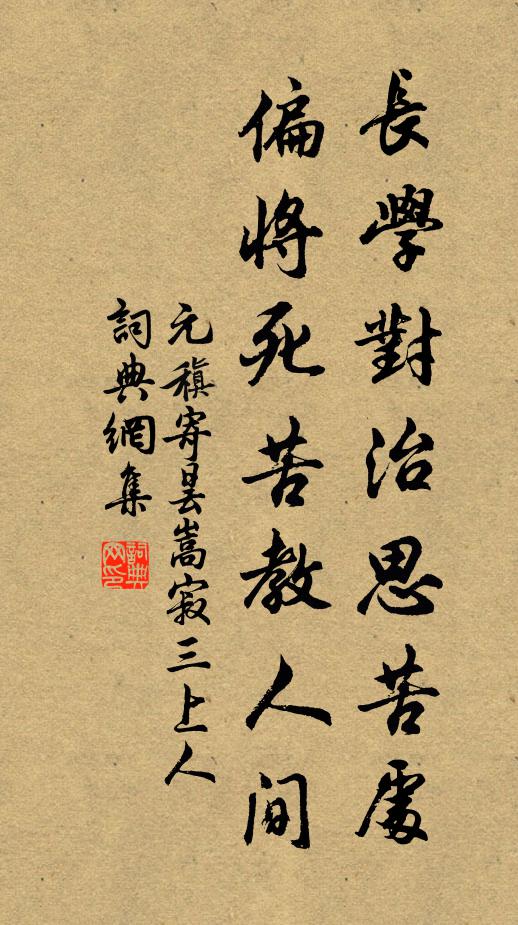 長學對治思苦處
偏將死苦教人間
元稹寄曇嵩寂三上人
詞典網集
詞典
网印